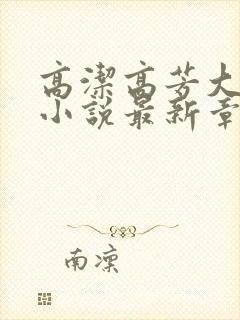 高潔高芳大
小說最新章
南凜